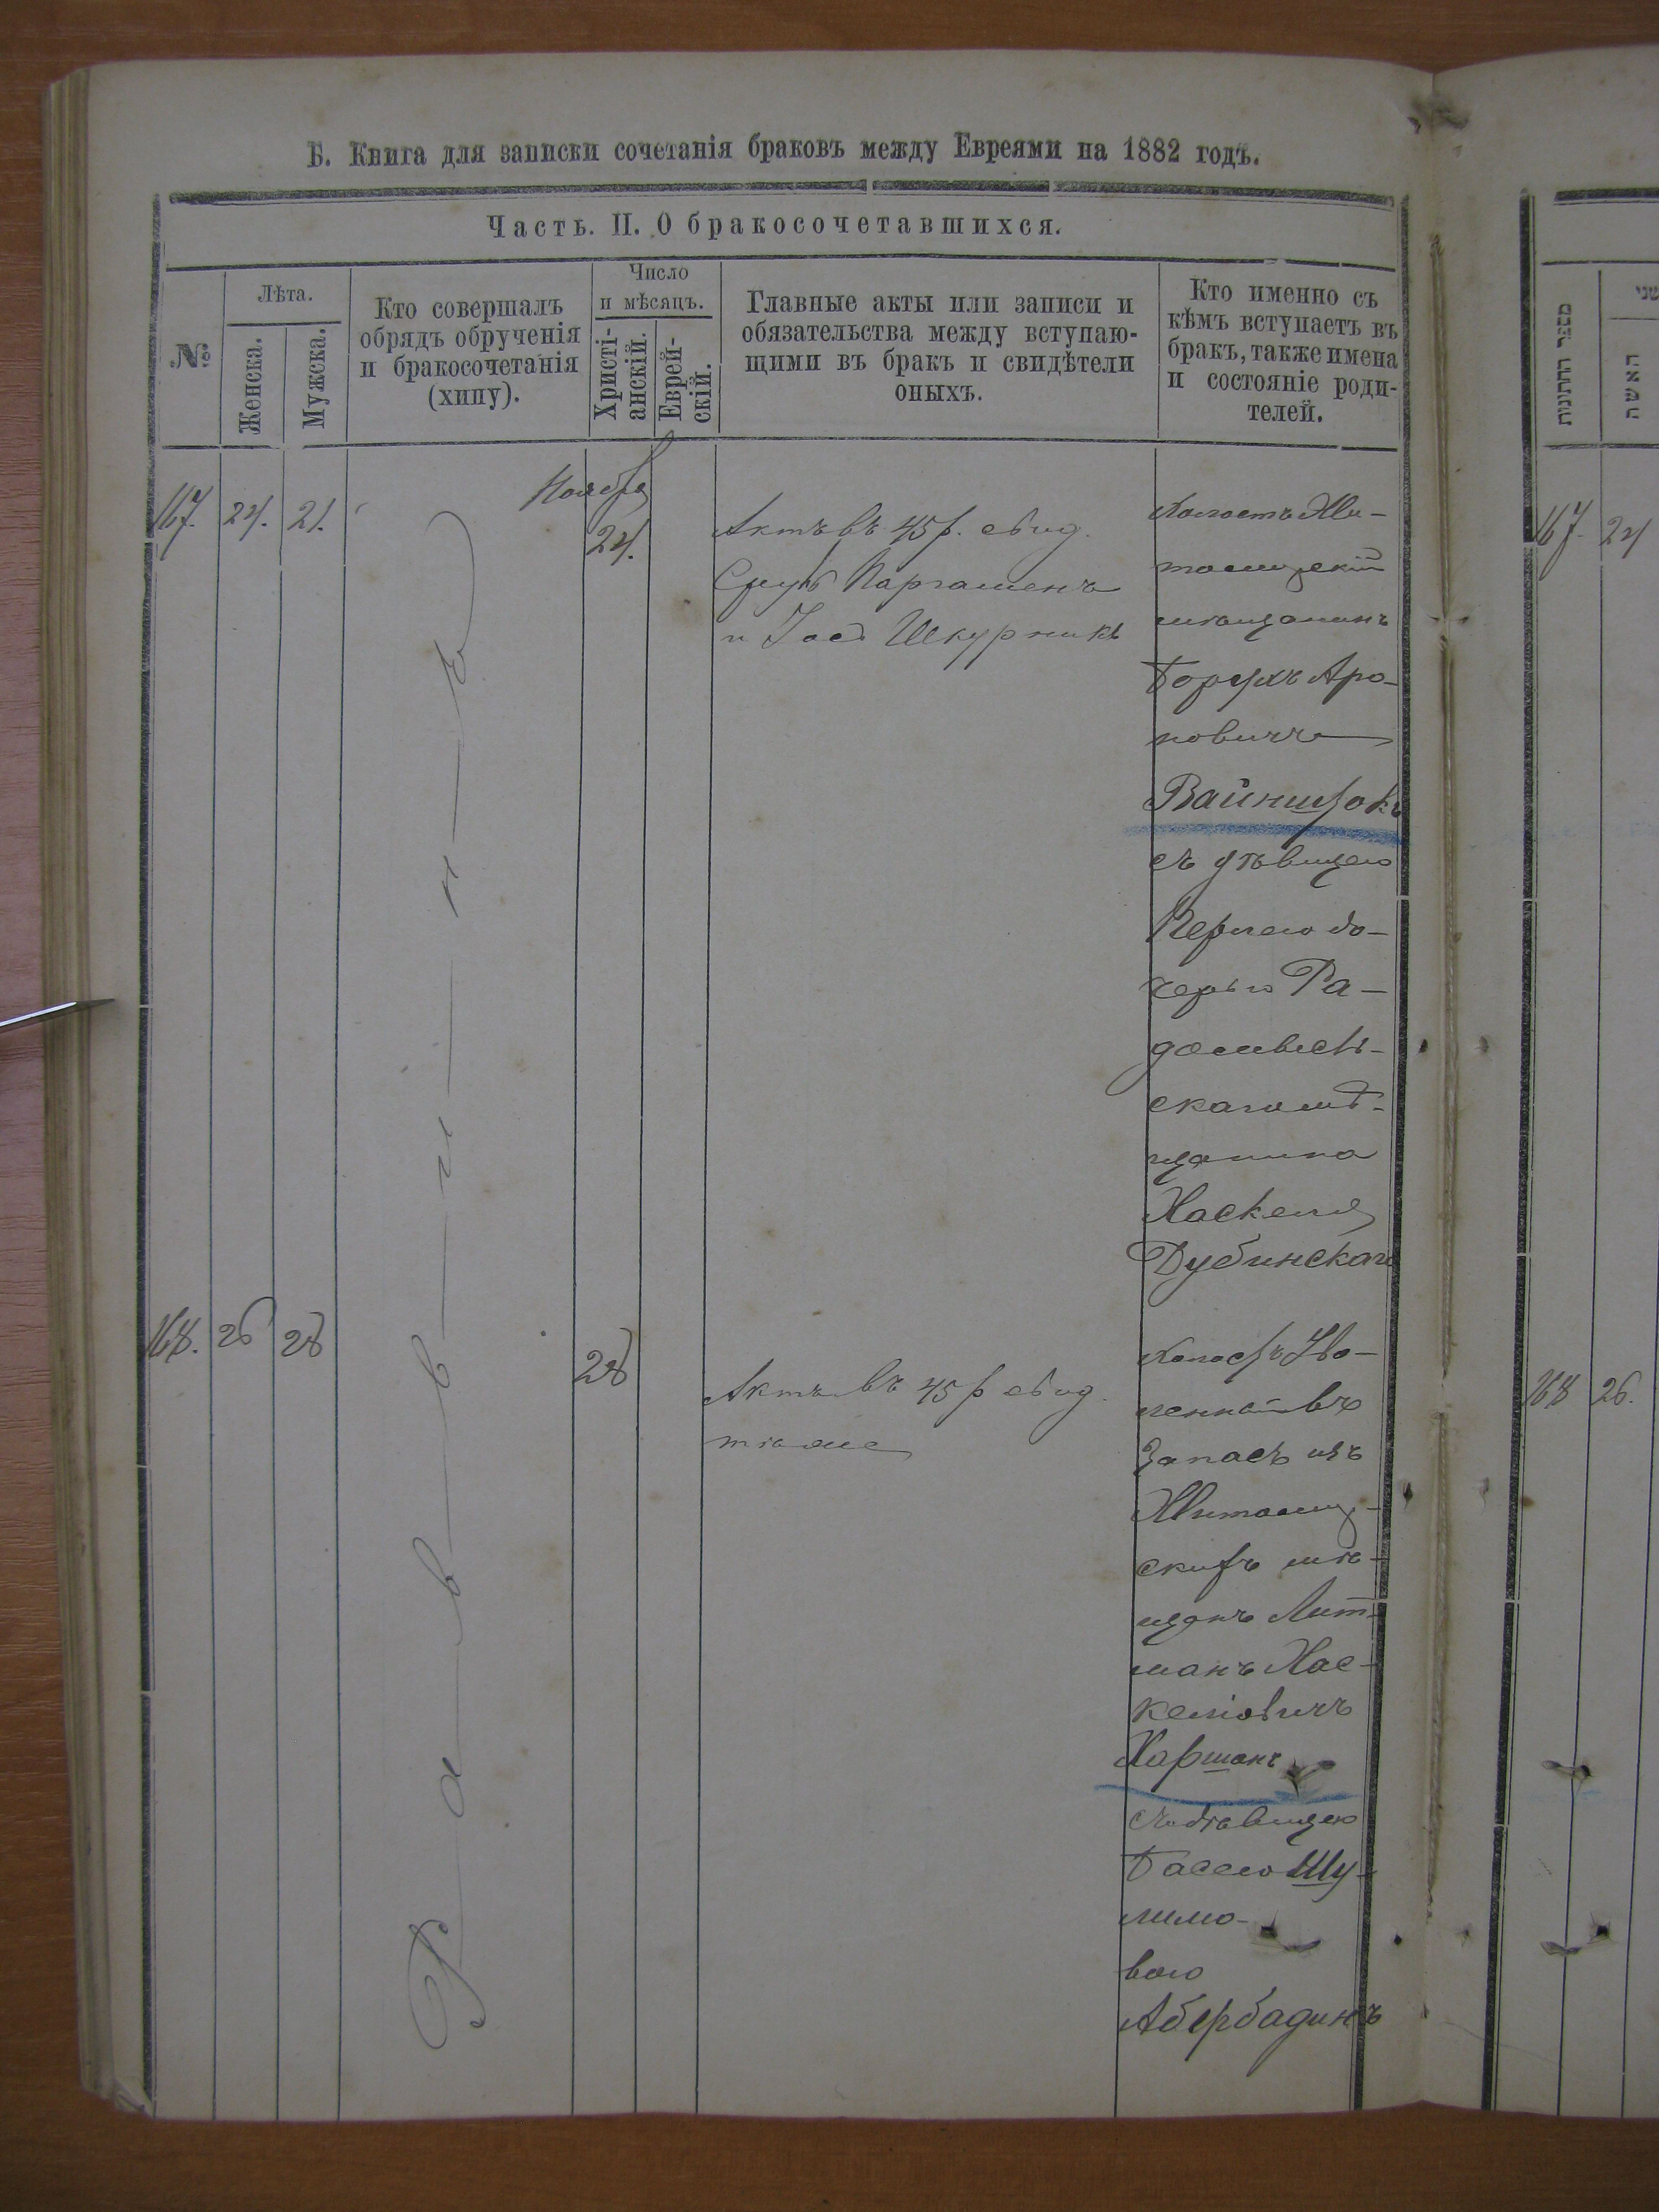 Б. Книга для записки сочетанія браковъ между Евреями на 1882 годъ.
Часть. II. О бракосочетавшихся.
№
Лѣта.
Женска.
Мужска.
Кто совершалъ
обрядъ обрученія
и бракосочетанія
(хипу).
Число
и мѣсяцъ.
Христі-
анскій.
Еврей-
скій.
Главные акты или записи и
обязательства между вступаю-
щими въ бракъ и свидѣтели
оныхъ.
Кто именно съ
кѣмъ вступаетъ въ
бракъ, также имена
и состояніе роди-
телей.
מספר החתונות
האשה
שני
167. 24. 21.
Раввинъ
Ноября
24.
Актъ въ 45 р. свид.
Паргаменъ
и Іос Шкурникъ
Холостъ Жи-
томирскій
мѣщанинъ
Борухъ Аро-
новичъ
Вайншрокъ
съ дѣвицею
Перлею до-
черью Ра-
домысль-
скаго мѣ-
щанина
Хаскеля
Дубинскаго
167. 24
168. 26 28
28
Актъ въ 45 р свид.
тѣ же
Холостъ Уво-
ленный въ
Запасъ изъ
Житомир-
скихъ мѣ-
щанъ Лит-
манъ Хас-
келіовичъ
Харманъ
съ дѣвицею
Басею Шу-
лимо-
вою
Абербадинъ
168 26.